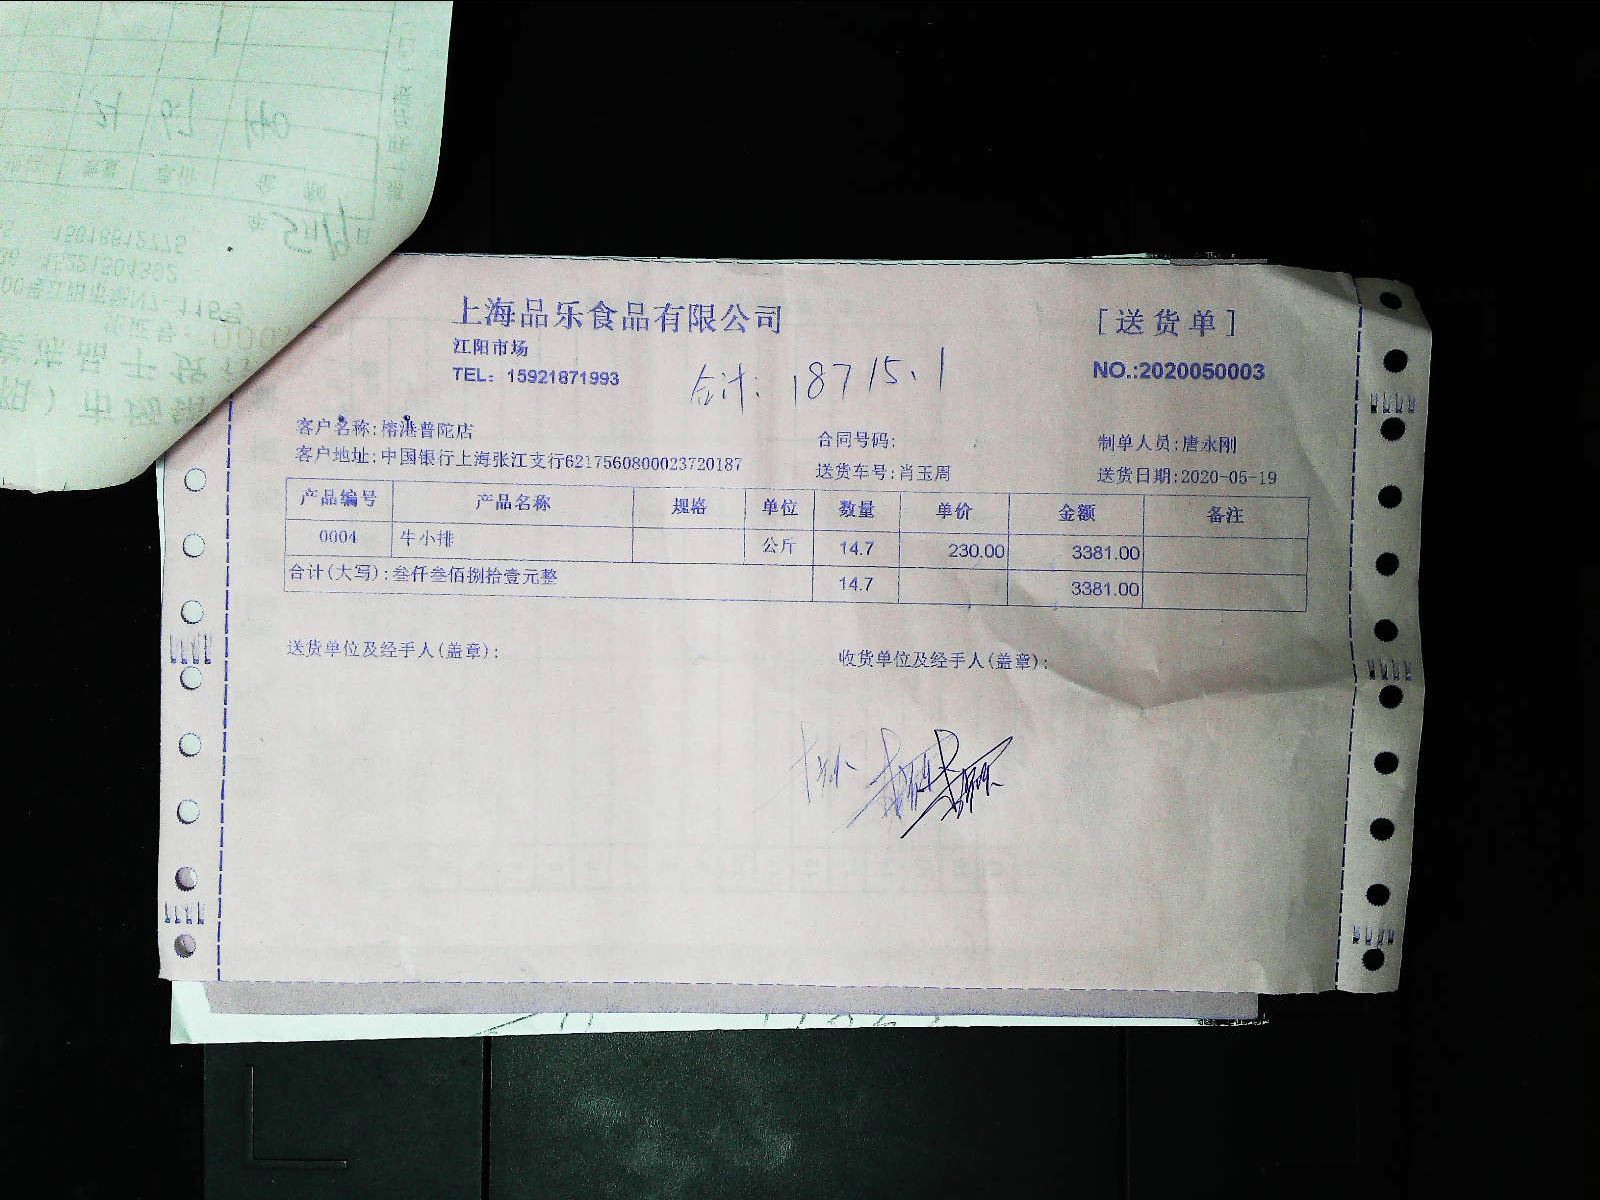 上海品乐食品有限公司
[送货单]
江阳市场
TEL: 15921871993
NO.:2020050003
合计: 18715.1
客户名称:榕港普陀店
合同号码:
制单人员:唐永刚
客户地址:中国银行上海张江支行6217560800023720187
送货车号:肖玉周
送货日期:2020-05-19
产品编号 产品名称 规格 单位 数量 单价 金额 备注
0004 牛小排 公斤 14.7 230.00 3381.00
合计(大写):叁仟叁佰捌拾壹元整 14.7 3381.00
送货单位及经手人(盖章):
收货单位及经手人(盖章):